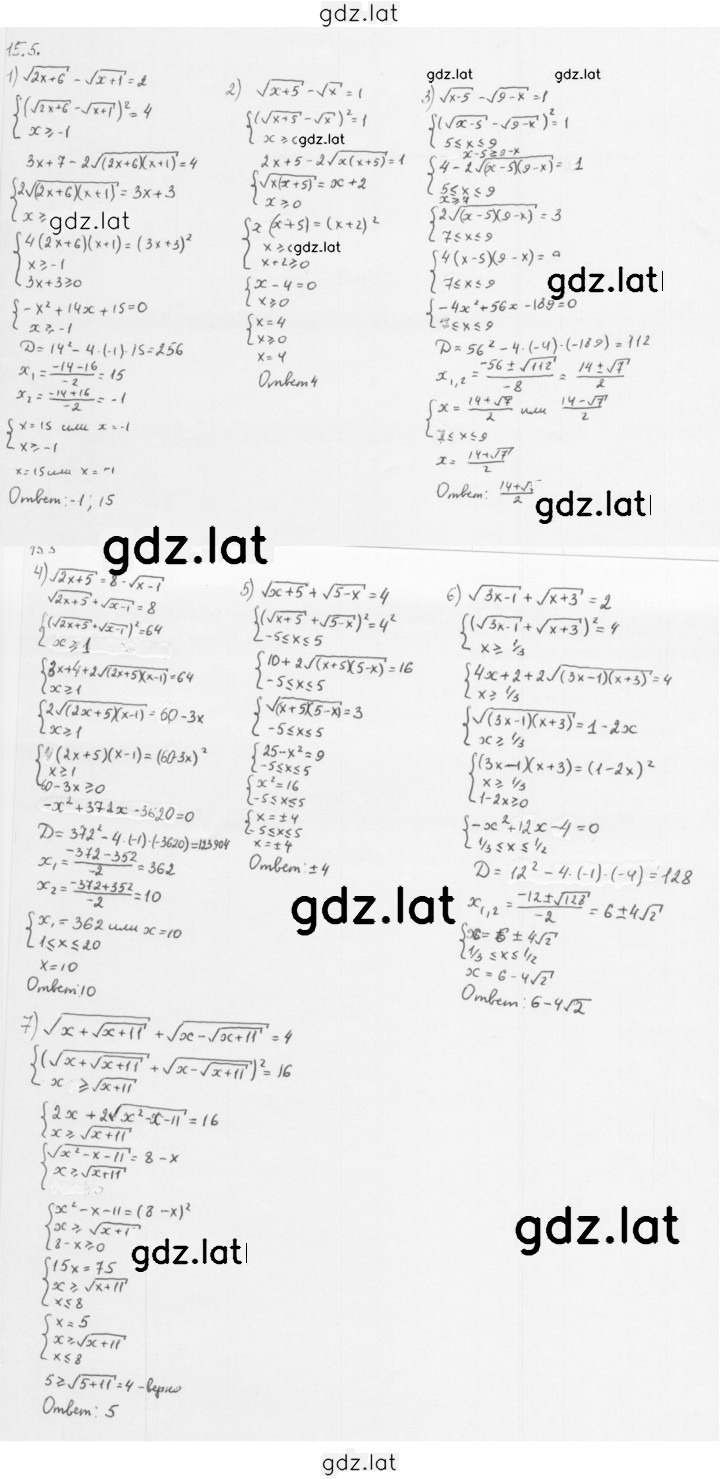 gdz.lat
15.5.
1) √(2x+6) - √(x+1) = 2
{(√(2x+6) - √(x+1))² = 4
x ≥ -1
3x+7-2√((2x+6)(x+1)) = 4
{2√((2x+6)(x+1)) = 3x+3
x ≥
gdz.lat
{4(2x+6)(x+1) = (3x+3)²
x ≥ -1
3x+3 ≥ 0
{-x²+14x+15=0
x ≥ -1
D = 14²-4·(-1)·15 = 256
x₁ = (-14-16)/-2 = 15
x₂ = (-14+16)/-2 = -1
{x=15 или x=-1
x ≥ -1
x=15 или x=-1
Ответ: -1; 15
2) √(x+5) - √x = 1
{(√(x+5) - √x)² = 1
x ≥ gdz.lat
2x+5-2√(x(x+5)) = 1
{√(x(x+5)) = x+2
x ≥ 0
{x(x+5) = (x+2)²
x ≥ gdz.lat
x+2 ≥ 0
{x-4=0
x ≥ 0
{x=4
x ≥ 0
x=4
Ответ 4
gdz.lat gdz.lat
3) √(x-5) - √(9-x) = 1
{(√(x-5) - √(9-x))² = 1
5 ≤ x ≤ 9
x-5 ≥ 9-x
{4-2√((x-5)(9-x)) = 1
5 ≤ x ≤ 9
x ≥ 7
{2√((x-5)(9-x)) = 3
7 ≤ x ≤ 9
{4(x-5)(9-x) = 9
7 ≤ x ≤ 9
gdz.lat
{-4x²+56x-189=0
7 ≤ x ≤ 9
D = 56²-4·(-4)·(-189) = 112
x₁,₂ = (-56±√112)/-8 = (14±√7)/2
{x = (14+√7)/2 или (14-√7)/2
7 ≤ x ≤ 9
x = (14+√7)/2
Ответ: (14+√7)/2
gdz.lat
gdz.lat
15.5
4) √(2x+5) = 8-√(x-1)
√(2x+5) + √(x-1) = 8
{(√(2x+5) + √(x-1))² = 64
x ≥ 1
{3x+4+2√((2x+5)(x-1)) = 64
x ≥ 1
{2√((2x+5)(x-1)) = 60-3x
x ≥ 1
{4(2x+5)(x-1) = (60-3x)²
x ≥ 1
60-3x ≥ 0
-x²+372x-3620=0
D = 372²-4·(-1)·(-3620) = 123904
x₁ = (-372-352)/-2 = 362
x₂ = (-372+352)/-2 = 10
{x₁ = 362 или x=10
1 ≤ x ≤ 20
x=10
Ответ: 10
5) √(x+5) + √(5-x) = 4
{(√(x+5) + √(5-x))² = 4²
-5 ≤ x ≤ 5
{10+2√((x+5)(5-x)) = 16
-5 ≤ x ≤ 5
{√((x+5)(5-x)) = 3
-5 ≤ x ≤ 5
{25-x²=9
-5 ≤ x ≤ 5
{x²=16
-5 ≤ x ≤ 5
{x=±4
-5 ≤ x ≤ 5
x=±4
Ответ: ±4
gdz.lat
6) √(3x-1) + √(x+3) = 2
{(√(3x-1) + √(x+3))² = 4
x ≥ 1/3
{4x+2+2√((3x-1)(x+3)) = 4
x ≥ 1/3
{√((3x-1)(x+3)) = 1-2x
x ≥ 1/3
{(3x-1)(x+3) = (1-2x)²
x ≥ 1/3
1-2x ≥ 0
{-x²+12x-4=0
1/3 ≤ x ≤ 1/2
D = 12²-4·(-1)·(-4) = 128
x₁,₂ = (-12±√128)/-2 = 6±4√2
{x = 6±4√2
1/3 ≤ x ≤ 1/2
x = 6-4√2
Ответ: 6-4√2
7) √(x+√(x+11)) + √(x-√(x+11)) = 4
{(√(x+√(x+11)) + √(x-√(x+11)))² = 16
x ≥ √(x+11)
{2x+2√(x²-x-11) = 16
x ≥ √(x+11)
{√(x²-x-11) = 8-x
x ≥ √(x+11)
{x²-x-11 = (8-x)²
x ≥ √(x+1
8-x ≥ 0
gdz.lat
gdz.lat
{15x=75
x ≥ √(x+11)
x ≤ 8
{x=5
x ≥ √(x+11)
x ≤ 8
5 ≥ √(5+11) = 4 - верно
Ответ: 5
gdz.lat